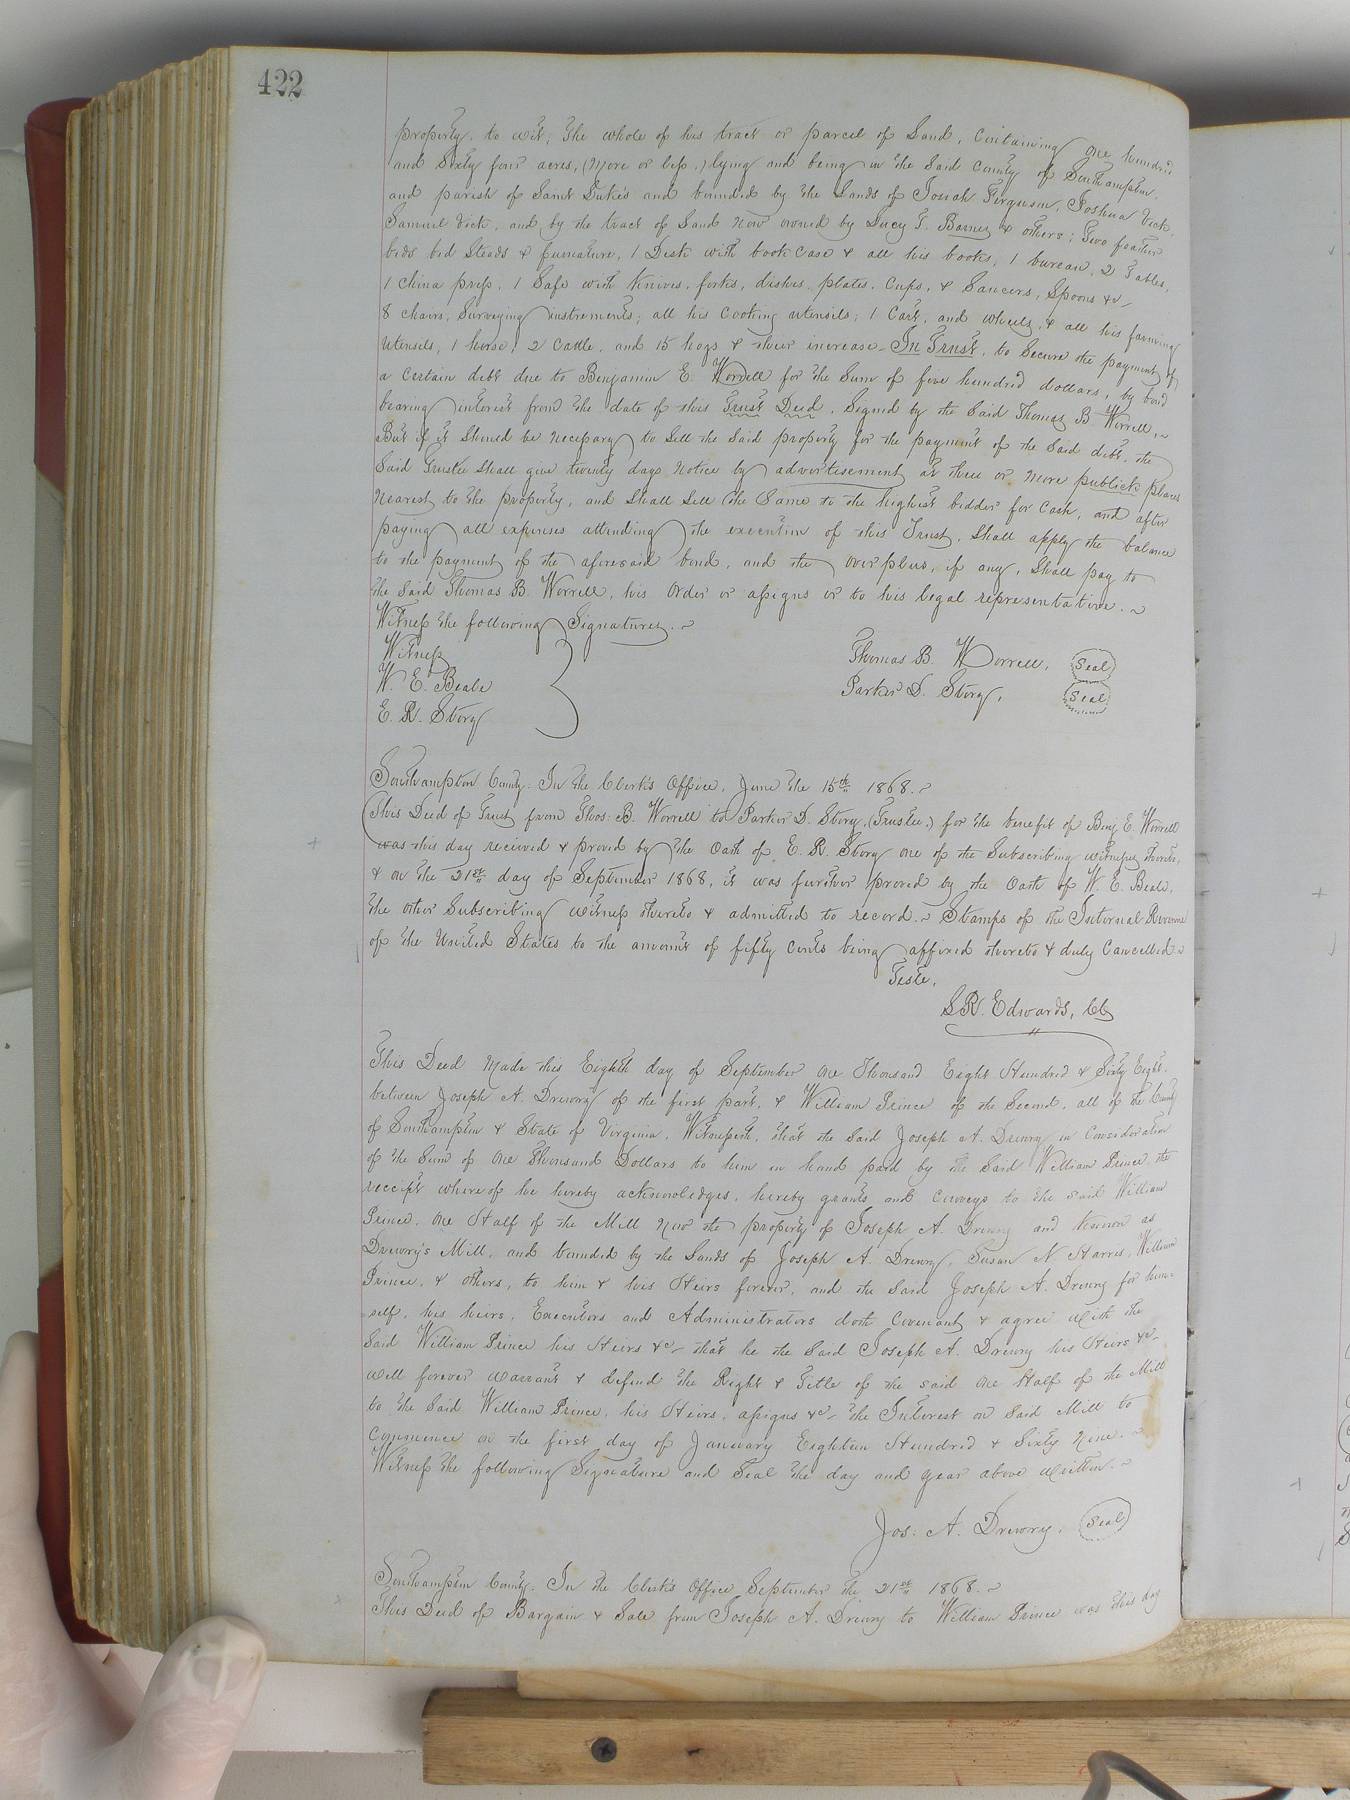 422
property, to wit; The whole of his tract or parcel of Land, Containing one hundred
and Sixty four acres, (More or less,) lying and being in the Said County of Southampton,
and parish of Saint Luke's and bounded by the Lands of Josiah Ferguson, Joshua Vick,
Samuel Vick, and by the tract of Land now owned by Lucy T. Barnes & others; Two feather
beds bed Steads & furniature, 1 Desk with book Case & all his books, 1 bureau, 2 Tables,
1 China press, 1 Safe with Knives, forks, dishes, plates, Cups, & Saucers, Spoons &c
8 chairs, Surveying instrements; all his Cooking utensils; 1 Cart, and wheels, & all his farming
utensils, 1 horse, 2 Cattle, and 15 hogs & their increase - In Trust, to Secure the payment of
a Certain debt due to Benjamin E. Worrell for the Sum of five hundred dollars, by bond
bearing interest from the date of this Trust Deed, Signed by the Said Thomas B. Worrell, ~
But if it Should be necessary to Sell the Said property for the payment of the Said debt, the
Said Trustee Shall give twenty days Notice by advertisement at three or more publick places
nearest to the property, and Shall Sell the Same to the highest bidder for Cash, and after
paying all expenses attending the execution of this Trust, Shall apply the balance
to the payment of the aforesaid bond, and the overplus, if any, Shall pay to
the Said Thomas B. Worrell, his Order or assigns or to his legal representative. ~
Witness the following Signatures. ~
Witness
W. E. Beale
E. R. Story
Thomas B. Worrell, Seal
Parker D. Story, Seal
Southampton County. In the Clerk's Office, June the 15th 1868. ~
This Deed of Trust from Thos: B. Worrell to Parker D. Story, (Trustee,) for the benefit of Benj E. Worrell
was this day received & proved by the Oath of E. R. Story one of the Subscribing witnesses thereto,
& on the 21st day of September 1868, it was further proved by the Oath of W. E. Beale,
the other Subscribing witness thereto & admitted to record. ~ Stamps of the Internal Revenue
of the United States to the amount of fifty cents being affixed thereto & duly Cancelled. ~
Teste,
L R. Edwards, Clk
This Deed Made this Eighth day of September One Thousand Eight Hundred & Sixty Eight,
between Joseph A. Drewry of the first part, & William Prince of the Second, all of the County
of Southampton & State of Virginia, Witnesseth, that the Said Joseph A. Drewry in Consideration
of the Sum of One Thousand Dollars to him in hand paid by the Said William Prince, the
receipt where of he hereby acknowledges, hereby grants and Conveys to the said William
Prince, One Half of the Mill Now the property of Joseph A. Drewry and known as
Drewry's Mill, and bounded by the Lands of Joseph A. Drewry, Susan N. Harris, William
Prince, & others, to him & his Heirs forever, and the Said Joseph A. Drewry for him=
self, his heirs, Executors and Administrators doth Covenant & agree With the
Said William Prince his Heirs &c - that he the Said Joseph A. Drewry his Heirs &c -
will forever warrant & defend the Right & Title of the said One Half of the Mill
to the Said William Prince, his Heirs, assigns &c - The Interest on Said Mill to
Commence on the first day of January Eighteen Hundred & Sixty Nine. ~
Witness the following Signature and Seal the day and year above Written. ~
Jos: A. Drewry. Seal
Southampton County. In the Clerk's Office September the 21st 1868. ~
This Deed of Bargain & Sale from Joseph A. Drewry to William Prince was this day